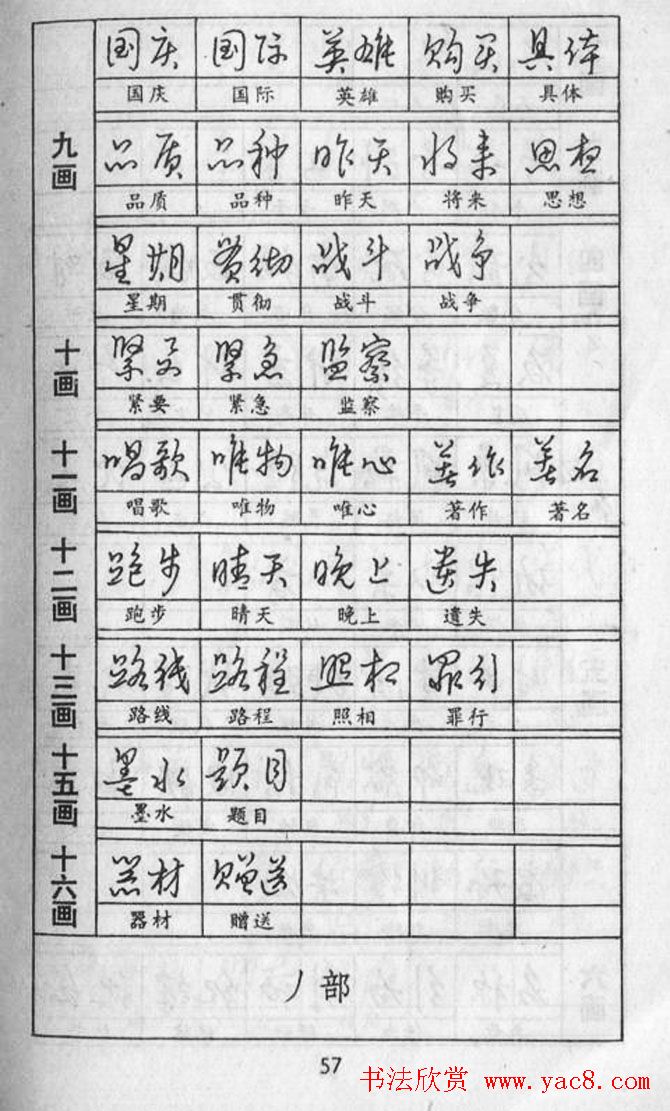 国庆 国际 英雄 购买 具体
国庆 国际 英雄 购买 具体
九画
品质 品种 昨天 将来 思想
品质 品种 昨天 将来 思想
星期 贯彻 战斗 战争
星期 贯彻 战斗 战争
十画
紧要 紧急 监察
紧要 紧急 监察
十一画
唱歌 唯物 唯心 著作 著名
唱歌 唯物 唯心 著作 著名
十二画
跑步 晴天 晚上 遗失
跑步 晴天 晚上 遗失
十三画
路线 路程 照相 罪行
路线 路程 照相 罪行
十五画
墨水 题目
墨水 题目
十六画
器材 赠送
器材 赠送
丿部
57
书法欣赏 www.yac8.com